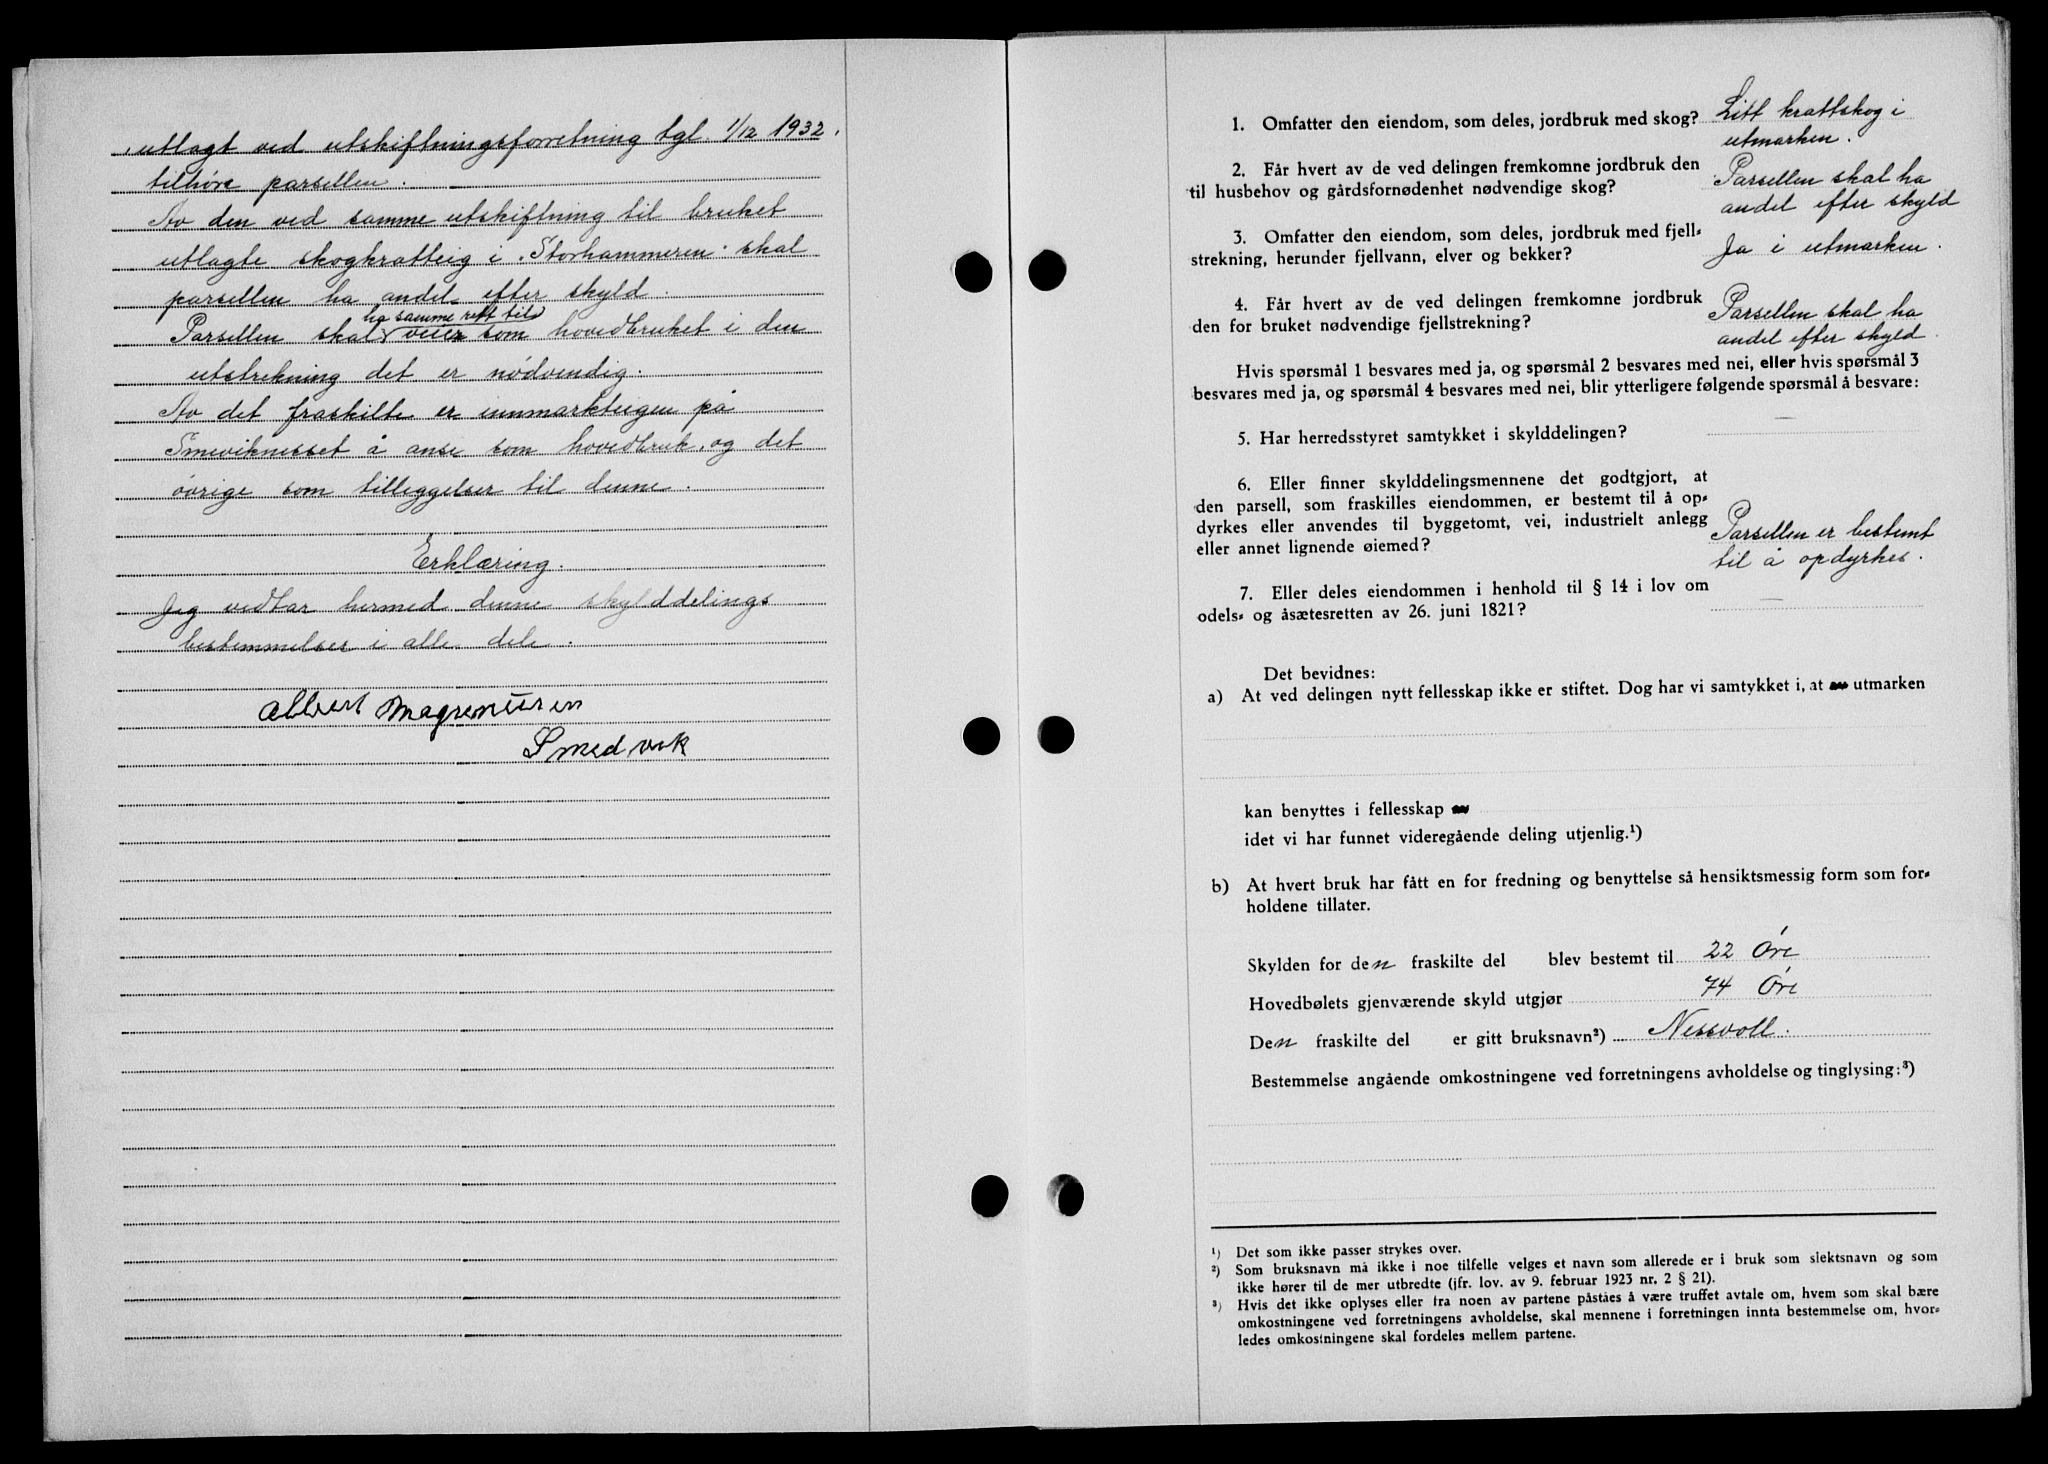 utlagt ved utskiftningsforretning tgl. 1/12 1932,
tilhøre parsellen.
Av den ved samme utskiftning til bruket
utlagte skogkratteig i "Storhammeren" skal
parsellen ha andel efter skyld.
ha samme rett til
Parsellen skal veier som hovedbruket i den
utstrekning det er nødvendig.
Av det fraskilte er innmarkteigen på
Smeviknesset å anse som hovedbruk, og det
øvrige som tilleggelser til denne.
Erklæring.
Jeg vedtar hermed denne skylddelings
bestemmelser i alle dele.
Albert
Smedvik
1. Omfatter den eiendom, som deles, jordbruk med skog? Litt krattskog i
utmarken.
2. Får hvert av de ved delingen fremkomne jordbruk den
til husbehov og gårdsfornødenhet nødvendige skog? Parsellen skal ha
andel efter skyld
3. Omfatter den eiendom, som deles, jordbruk med fjell-
strekning, herunder fjellvann, elver og bekker? Ja i utmarken.
4. Får hvert av de ved delingen fremkomne jordbruk
den for bruket nødvendige fjellstrekning? Parsellen skal ha
andel efter skyld.
Hvis spørsmål 1 besvares med ja, og spørsmål 2 besvares med nei, eller hvis spørsmål 3
besvares med ja, og spørsmål 4 besvares med nei, blir ytterligere følgende spørsmål å besvare:
5. Har herredsstyret samtykket i skylddelingen? —
6. Eller finner skylddelingsmennene det godtgjort, at
den parsell, som fraskilles eiendommen, er bestemt til å op-
dyrkes eller anvendes til byggetomt, vei, industrielt anlegg
eller annet lignende øiemed? Parsellen er bestemt
til å opdyrkes.
7. Eller deles eiendommen i henhold til § 14 i lov om
odels- og åsætesretten av 26. juni 1821? —
Det bevidnes:
a) At ved delingen nytt fellesskap ikke er stiftet. Dog har vi samtykket i, at utmarken
kan benyttes i fellesskap
idet vi har funnet videregående deling utjenlig.¹)
b) At hvert bruk har fått en for fredning og benyttelse så hensiktsmessig form som for-
holdene tillater.
Skylden for den fraskilte del blev bestemt til 22 Øre
Hovedbølets gjenværende skyld utgjør 74 Øre
Den fraskilte del er gitt bruksnavn²) Nessvoll.
Bestemmelse angående omkostningene ved forretningens avholdelse og tinglysing:³)
¹) Det som ikke passer strykes over.
²) Som bruksnavn må ikke i noe tilfelle velges et navn som allerede er i bruk som slektsnavn og som
ikke hører til de mer utbredte (jfr. lov. av 9. februar 1923 nr. 2 § 21).
³) Hvis det ikke oplyses eller fra noen av partene påståes å være truffet avtale om, hvem som skal bære
omkostningene ved forretningens avholdelse, skal mennene i forretningen innta bestemmelse om, hvor-
ledes omkostningene skal fordeles mellem partene.